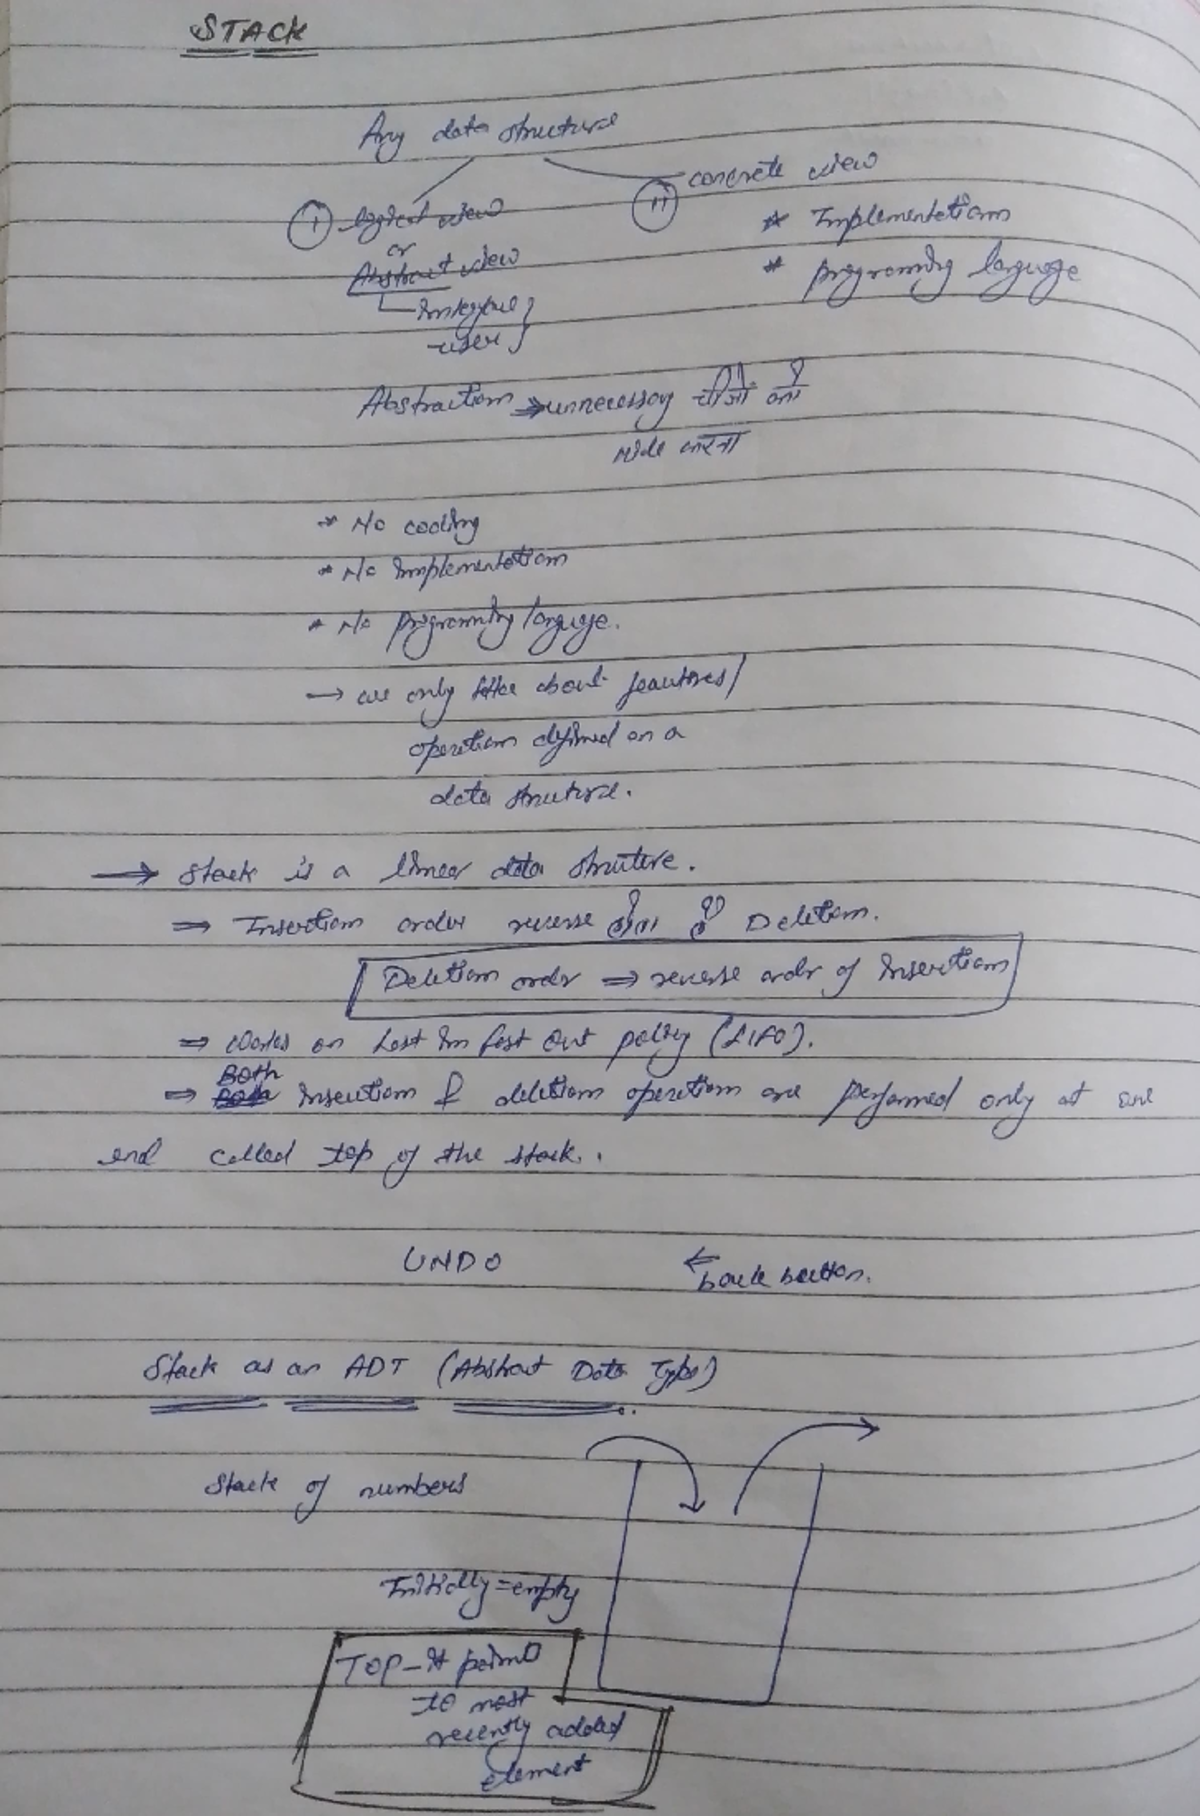 STACK
Any data structure
(i) logical view
or
Abstract view
user
(ii) concrete view
* Implementation
* programming language
Abstraction ⇒ unnecessary चीजों को
Hide करना
* No coding
* No Implementation
* No programming language.
→ we only about features/
operation defined on a
data struture.
→ Stack is a linear data struture.
⇒ Insertion order reverse होता है Deletion.
Deletion order ⇒ reverse order of Insertion
⇒ Works on Last In first Out policy (LIFO).
⇒ Both Insertion & deletion operation are performed only at one
end called top of the stack.
UNDO ← back button.
Stack as an ADT (Abstract Data Type)
Stack of numbers
Initially = empty
TOP - It points
to most
recently added
element